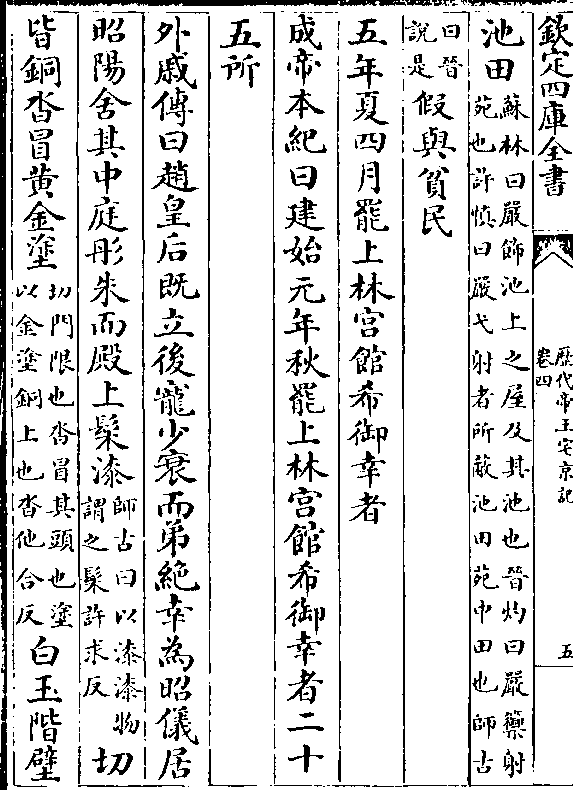 欽定四庫全書
歷代帝王宅京記
卷四
五
池田蘇林曰嚴飾池上之屋及其池也晉灼曰嚴籞射
苑也許慎曰嚴弋射者所蔽池田苑中田也師古
曰晉
說是假與貧民
五年夏四月罷上林宮館希御幸者
成帝本紀曰建始元年秋罷上林宮館希御幸者二十
五所
外戚傳曰趙皇后既立後寵少衰而弟絶幸為昭儀居
昭陽舍其中庭彤朱而殿上髤漆師古曰以漆漆物
謂之髤許求反切
皆銅沓冒黄金塗切門限也沓冒其頭也塗
以金塗銅上也沓他合反白玉階壁